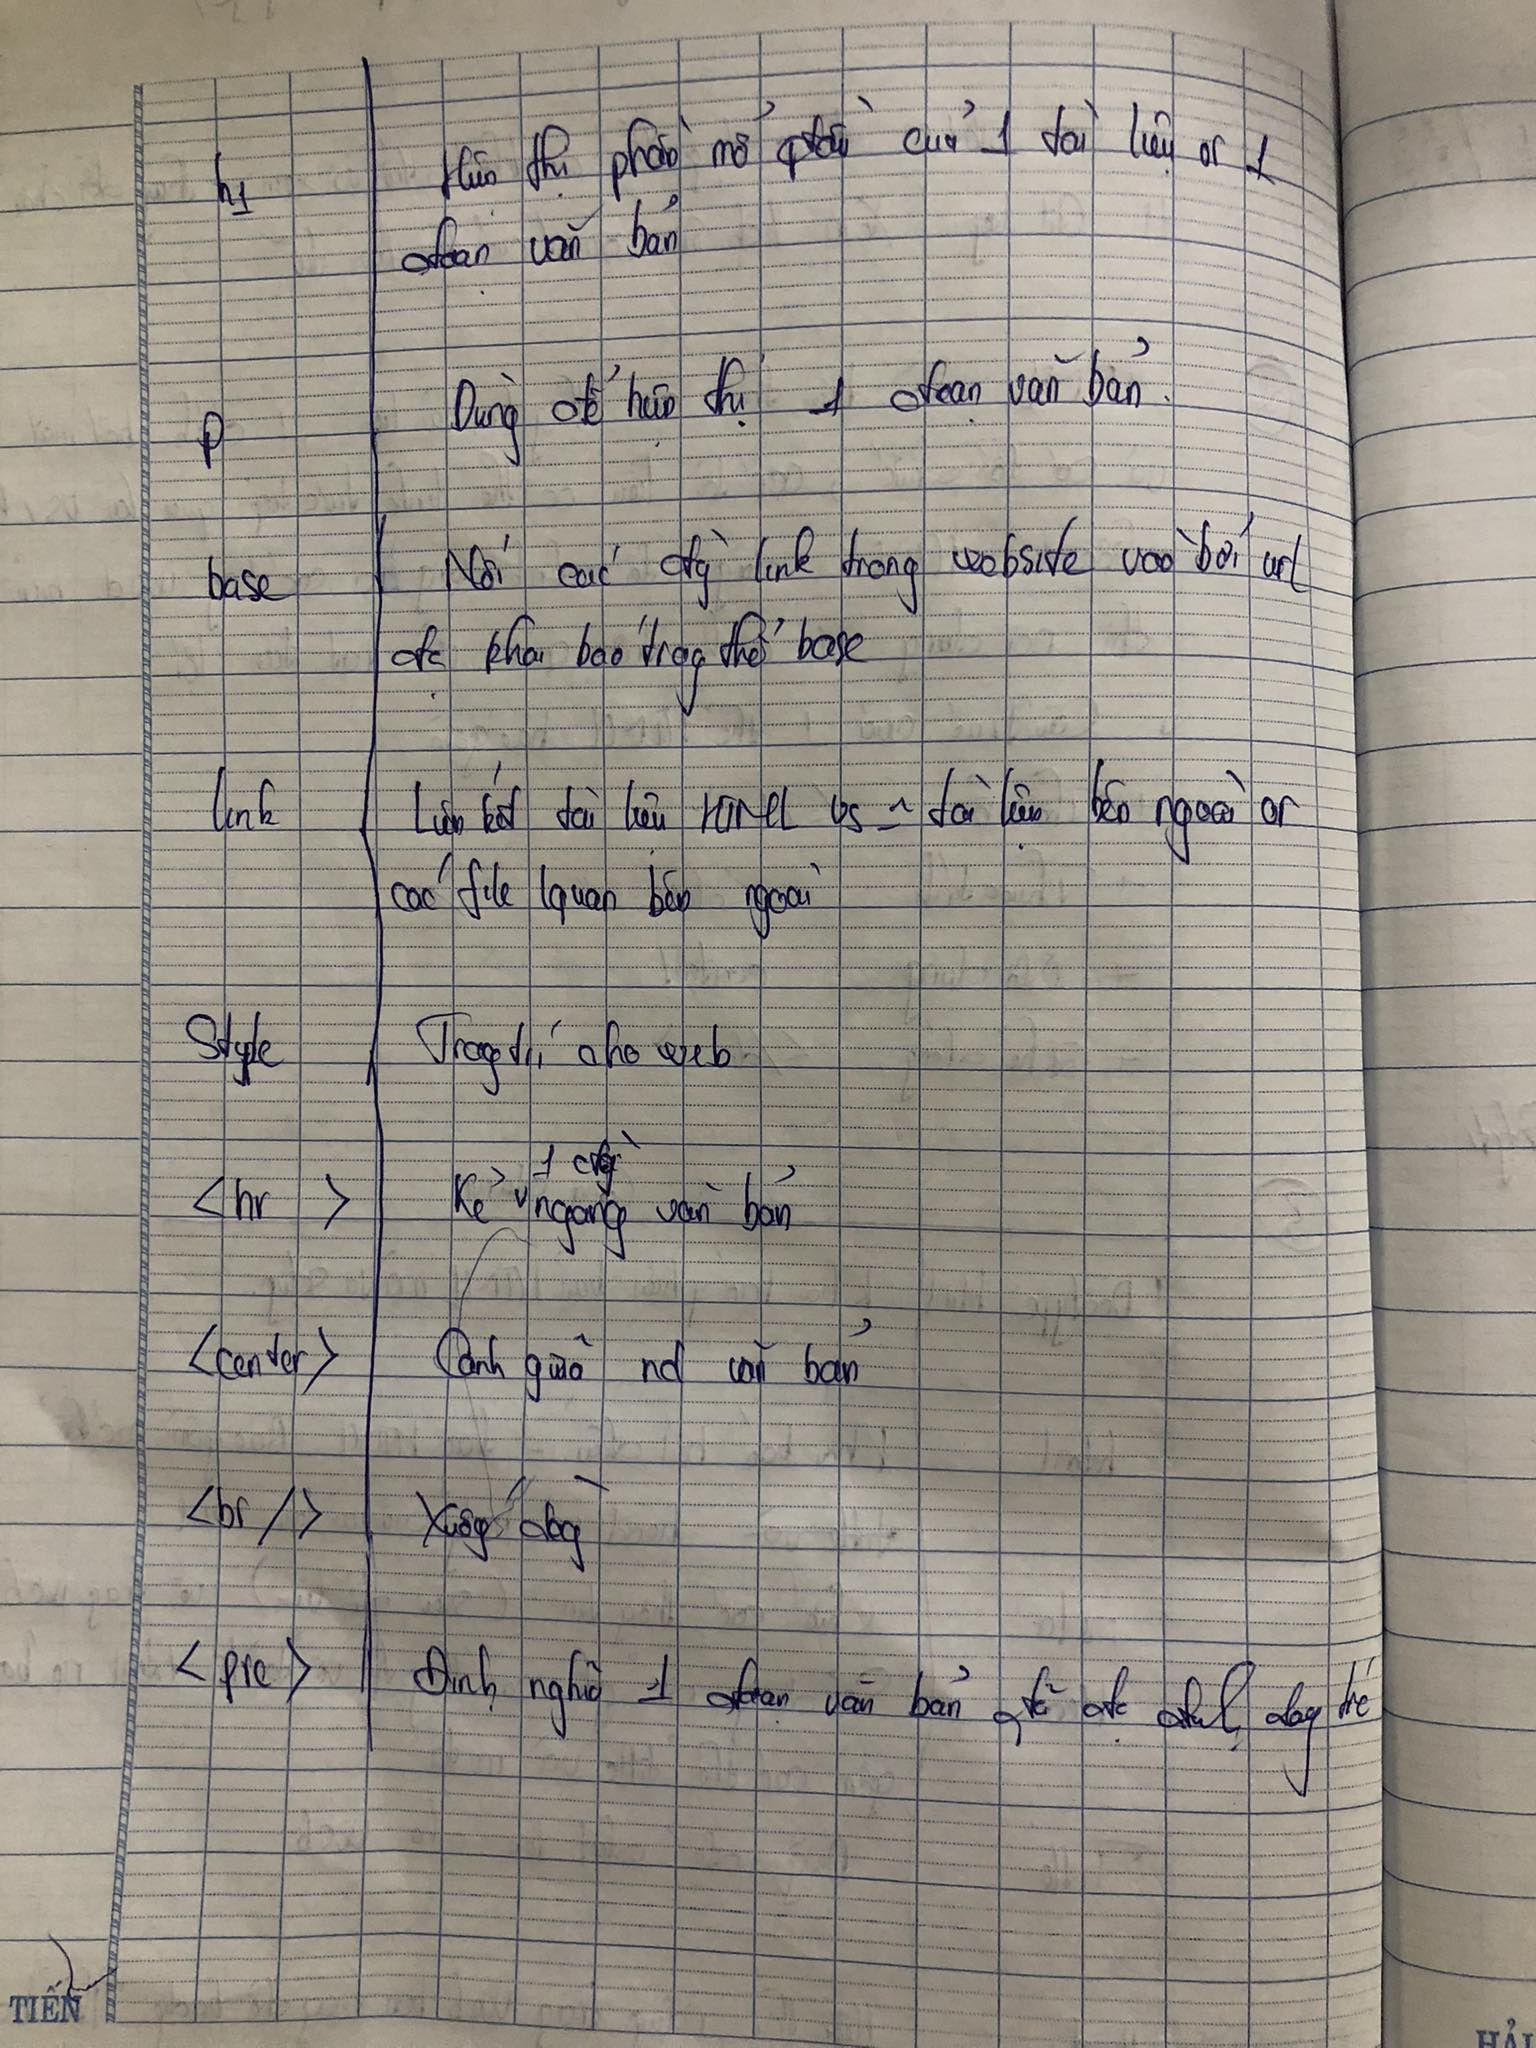 h1 Hiện thị phần mở đầu của 1 tài liệu or 1
đoạn văn bản
p Dùng để hiện thị 1 đoạn văn bản.
base Nối các đg link trong website vào bởi url
đc khai báo trog thẻ base
link Liên kết tài liệu HTML vs ~ tài liệu bên ngoài or
các file lquan bên ngoài
Style Trag trí cho web
1 đg
<hr > Kẻ v ngang văn bản
<center> Canh giữa nd văn bản
<br /> Xuống dòg
<pre> Định nghĩa 1 đoạn văn bản đã đc định dạg trc
TIẾN
HẢI